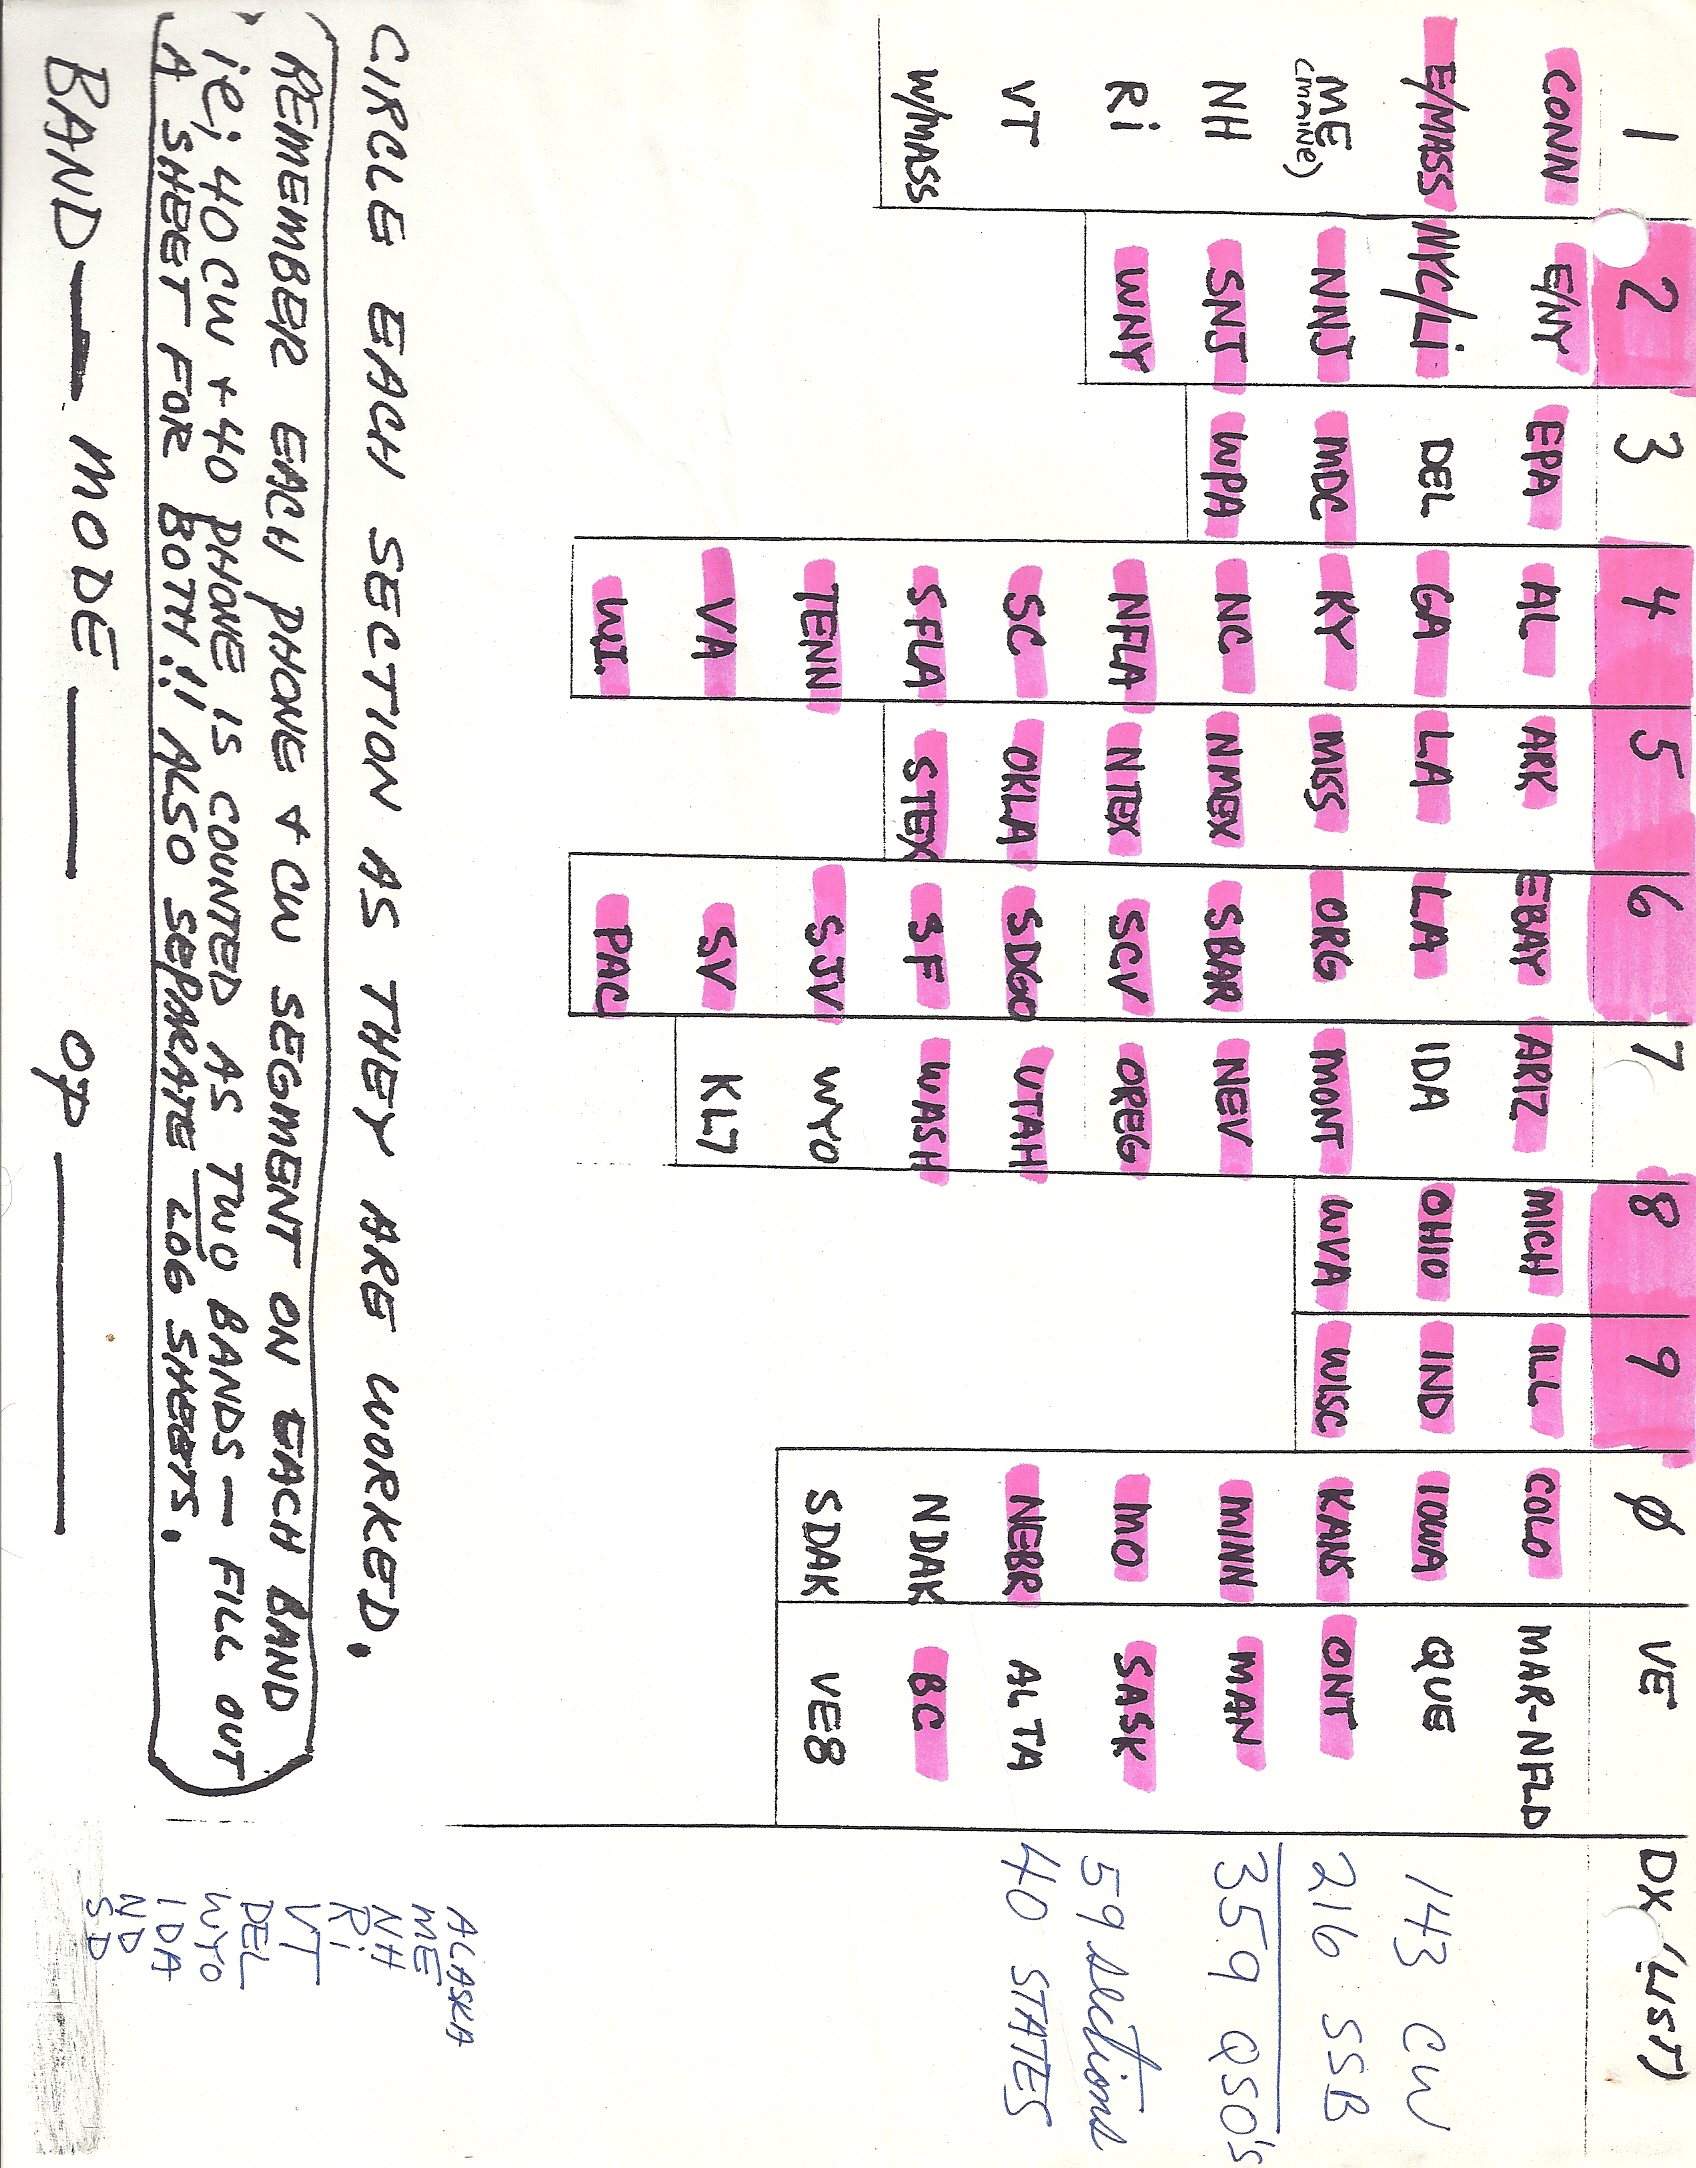 1 2 3 4 5 6 7 8 9 Ø VE DX (LIST)
CONN E/NY EPA AL ARK EBAY ARIZ MICH ILL COLO MAR-NFLD
E/MASS NYC/Li DEL GA LA LA IDA OHIO IND IOWA QUE 143 CW
ME NNJ MDC KY MISS ORG MONT WVA WISC KANS ONT 216 SSB
(MAINE)
NH SNJ WPA NC NMEX SBAR NEV MINN MAN 359 QSO's
Ri WNY NFLA NTEX SCV OREG MO SASK 59 sections
VT SC OKLA SDGO UTAH NEBR ALTA 40 STATES
W/MASS SFLA STEX SF WASH NDAK BC
TENN SJV WYO SDAK VE8
VA SV KL7
W.I. PAC
CIRCLE EACH SECTION AS THEY ARE WORKED.
(REMEMBER EACH PHONE + CW SEGMENT ON EACH BAND
ie; 40 CW + 40 PHONE IS COUNTED AS TWO BANDS — FILL OUT
A SHEET FOR BOTH!! ALSO SEPARATE LOG SHEETS.)
BAND — MODE — OP —
ALASKA
ME
NH
Ri
VT
DEL
WYO
IDA
ND
SD